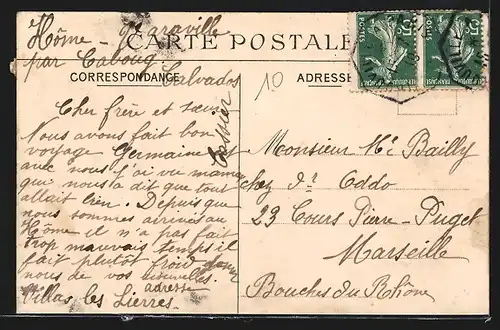 Hôme - Varaville
par Cabourg
Calvados
CARTE POSTALE
CORRESPONDANCE
ADRESSE
10
Cher frère et sœur
Nous avons fait bon
voyage Germaine
avec nous j'ai vu maman
qui nous a dit que tout
allait bien. Depuis que
nous sommes arrivés au
Hôme il n'a pas fait
trop mauvais temps il
fait plutôt froid donner
nous de vos nouvelles.
adresse
Villas les Lierres
Monsieur Mce Bailly
chez Dr Oddo
23 Cours Pierre-Puget
Marseille
Bouches du Rhône
POSTES
FRANÇAISE
5c
POSTES
FRANÇAISE
5c